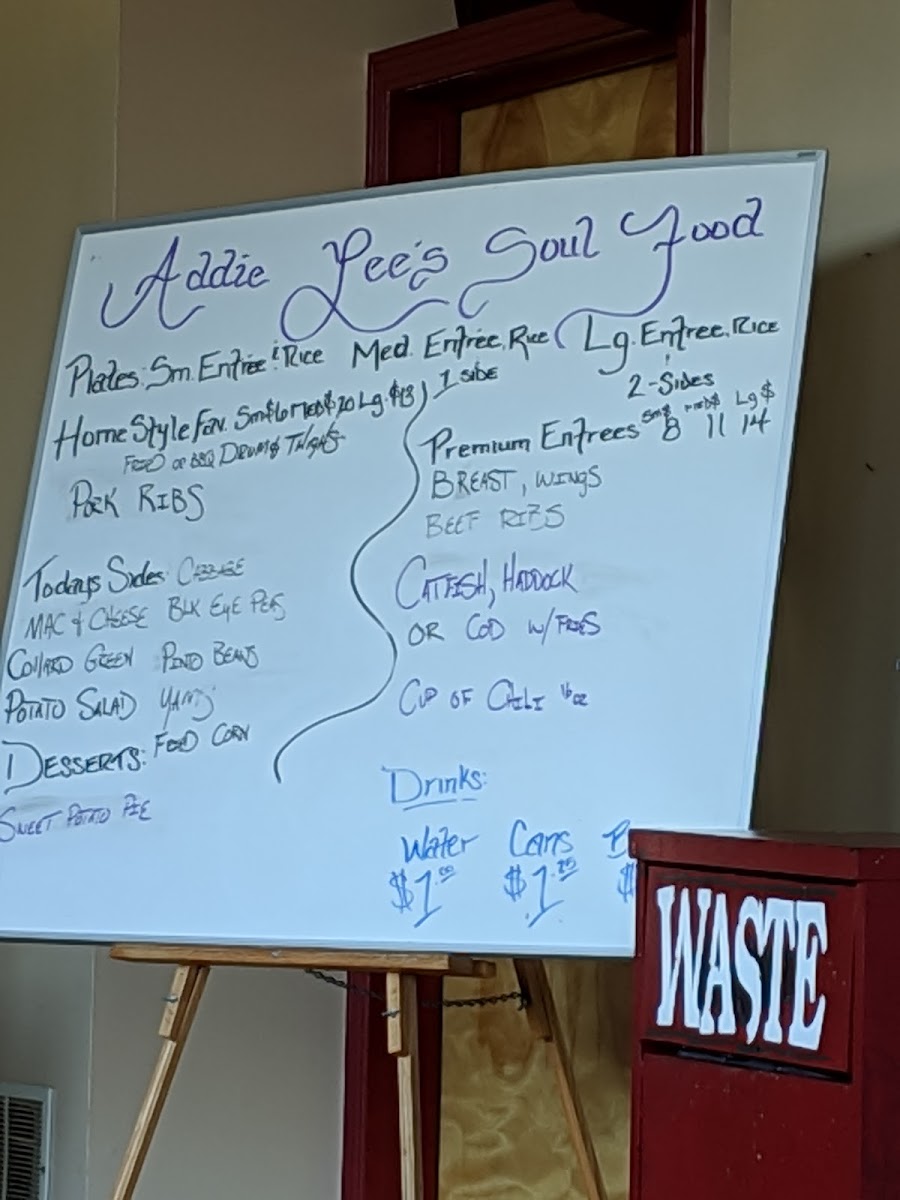 Addie Lee's Soul Food
Plates: Sm. Entrée & Rice Med. Entrée, Rice Lg. Entree, Rice
1 side
2-Sides
Home Style Fav. Sm$ Med$ Lg.
Drums Thighs
Pork Ribs
Premium Entrees Sm$ 8 med$ 11 Lg $ 14
Breast, Wings
Beef Ribs
Todays Sides: Cabbage
Mac & Cheese Blk Eye Peas
Collard Green Pinto Beans
Potato Salad Yams
Fried Corn
Desserts:
Sweet Potato Pie
Catfish, Haddock
or Cod w/Fries
Cup of Chili 16oz
Drinks:
Water Cans
$1.00 $1.25
WASTE